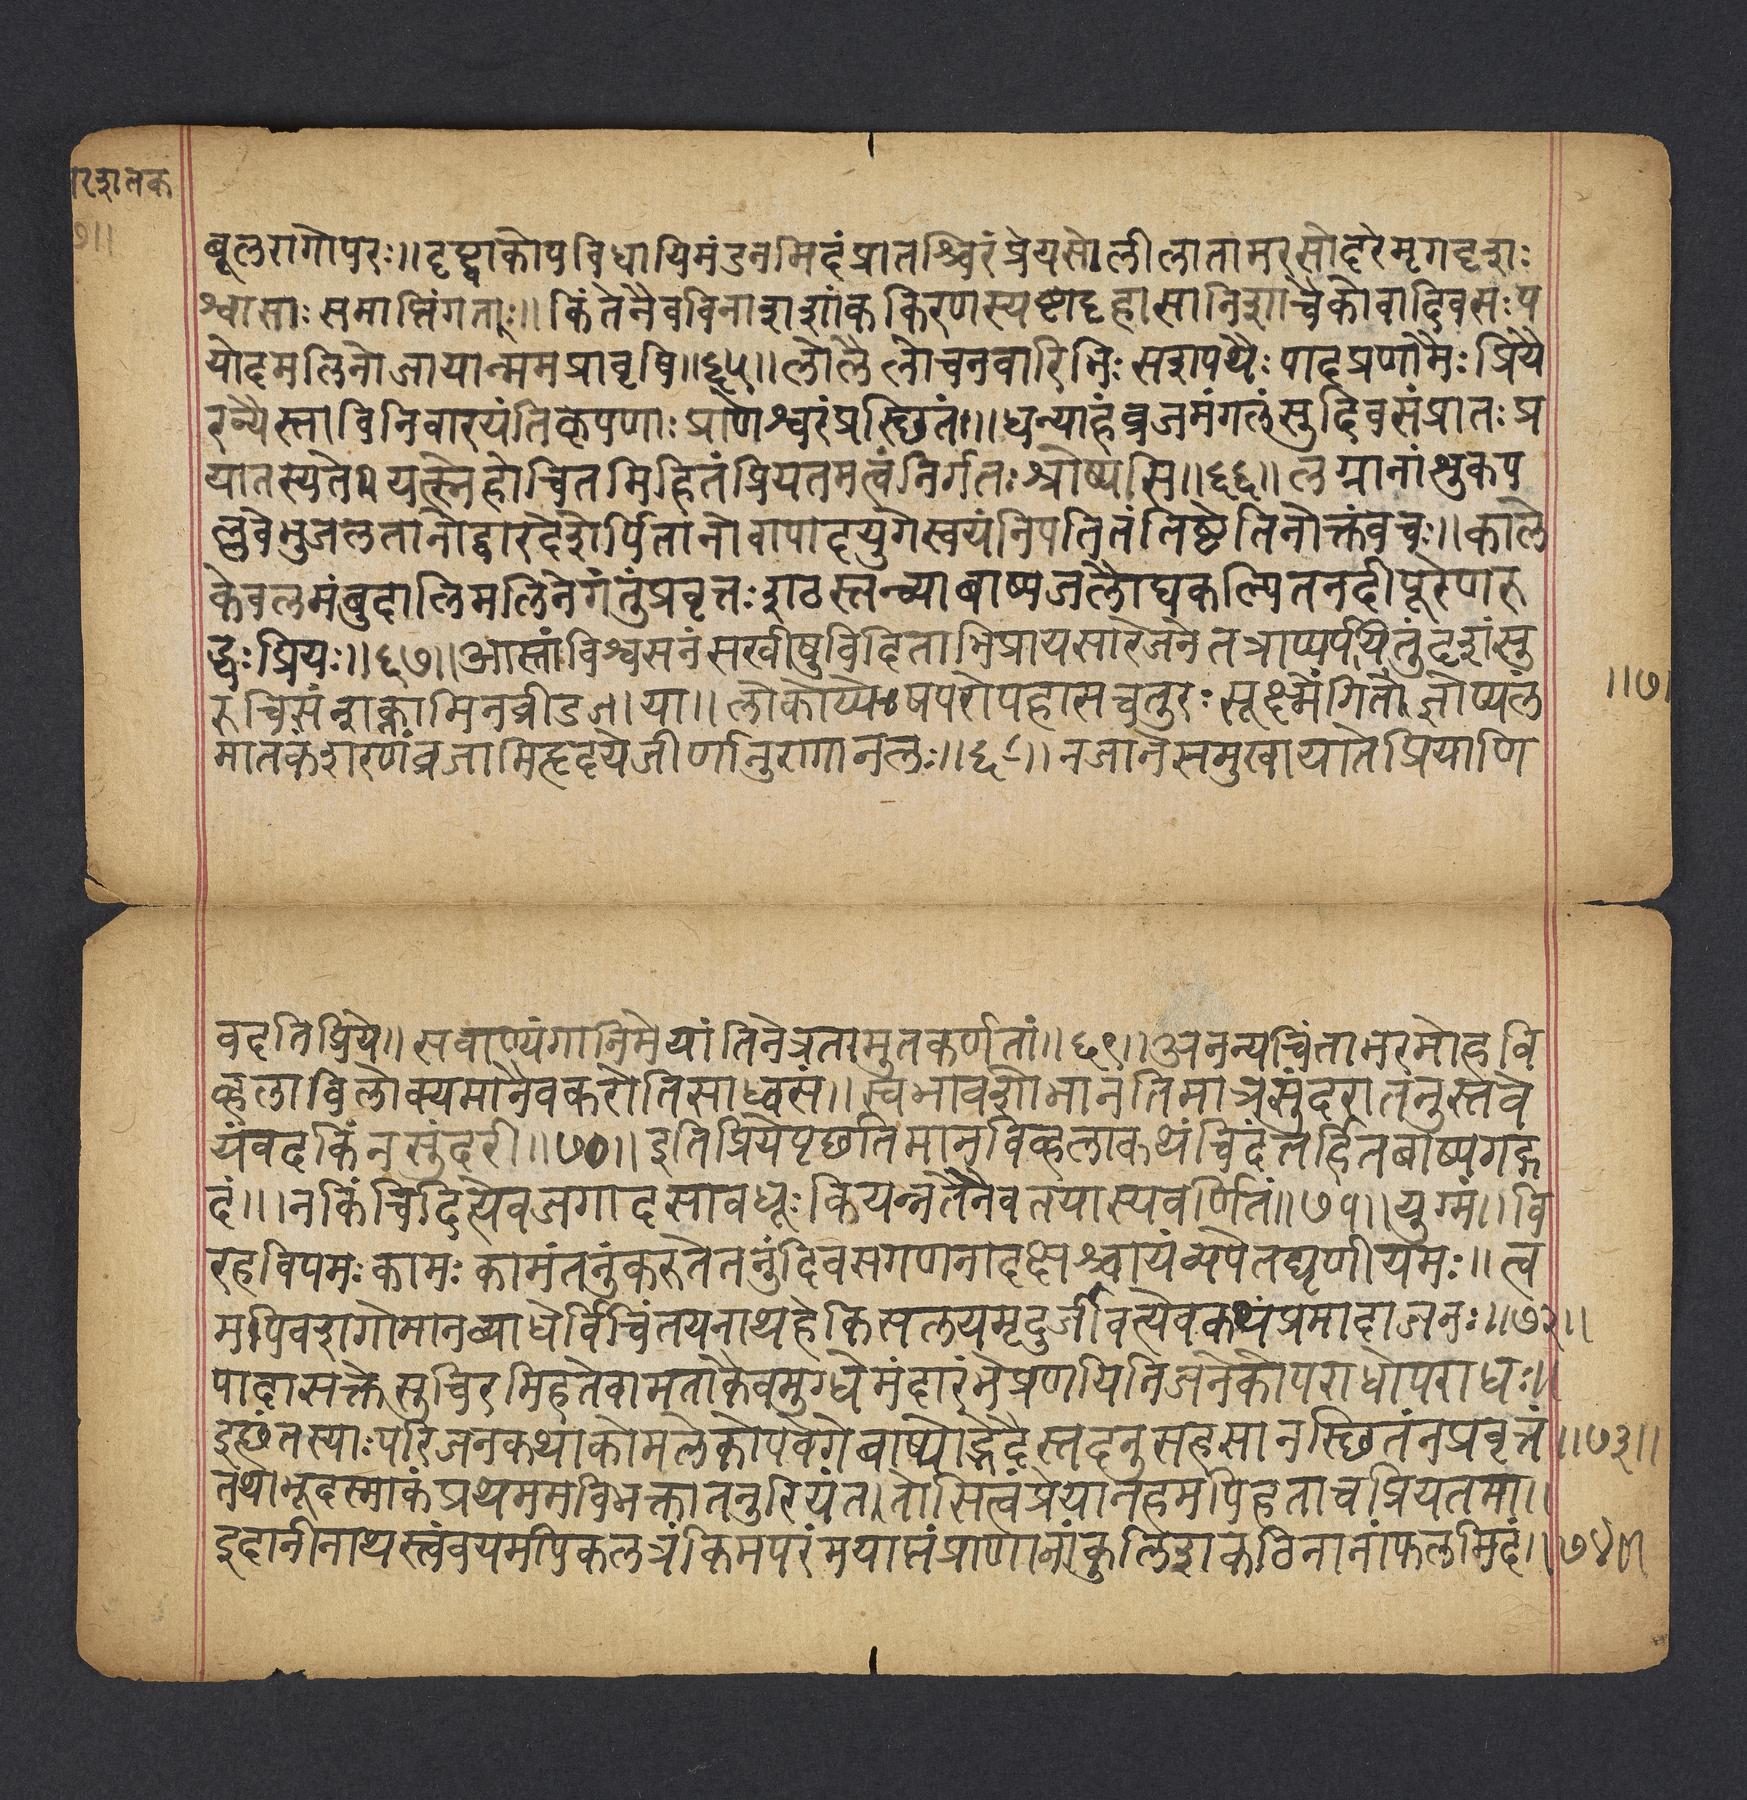 रशतक
७॥
बूलरागोपरः॥दृष्ट्वाकोपविधायिमंडनमिदंप्रातश्चिरंप्रेयसोलीलातामरसोदरेमृगदृशः
श्वासाः समाप्तिंगताः॥ किंतेनैवविनाशशांककिरणस्पष्टादृहासानिशाचैकोवादिवसः प
योदमलिनोजायान्ममप्रावृषि॥६५॥ लोलैलोचनवारिभिः सशपथैः पादप्रणामैः प्रियै
रन्यैस्ताविनिवारयंतिकृपणाः प्राणेश्वरंप्रस्छितं॥ धन्याहंव्रजमंगलंसुदिवसंप्रातः प्र
यातस्यते यत्स्नेहोचितमिहितंप्रियतमत्वंनिर्गतः श्रोष्यसि॥६६॥ लग्नानांशुकप
ल्लवेभुजलतानोद्वारदेशेर्पितानोवापादयुगेस्वयंनिपतितंतिष्टेतिनोक्तंवचः॥ काले
केवलमंबुदालिमलिनेगंतुंप्रवृत्तः शठस्तन्व्याबाष्पजलौघकल्पितनदीपूरेणरु
द्धः प्रियः॥६७॥ आस्तांविश्वसनंसखीषुविदिताभिप्रायसारेजनेतत्राप्यर्पयितुंदृशंसु
रुचिसंनशक्नामिनव्रीडजाया॥ लोकोप्येषपरोपहासचतुरः सूक्ष्मेंगितोज्ञोप्यलं
मातकंशरणंव्रजामिहृदयेजीर्णानुरागानलः॥६८॥ नजानेसमुखायातेप्रियाणि
॥७।
वदतिप्रिये॥ सर्वाण्यंगानिमेयांतिनेत्रतामुतकर्णतां॥६९॥ अनन्यचिंताभरमोहवि
व्हलाविलोक्यमानैवकरोतिसाध्वसं॥ स्वभावशोभानतिमात्रसुंदरातनुस्तवे
यंवदकिंनसुंदरी॥७०॥ इतिप्रियेपृछतिमानविव्हलाकथंचिदंतर्हितबाष्पगद्ग
दं॥ नकिंचिदित्येवजगादसावधूः कियन्नतेनैवतयास्यवर्णितं॥७१॥ युग्मं॥ वि
रहविषमः कामः कामंतनुंकरुतेतनुंदिवसगणनादक्षश्चायंव्यपेतघृणीयमः॥ त्व
मपिवशगोमानव्याधेर्विचिंतयनाथहेकिसलयमृदुर्जीवत्येवकथंप्रमादाजनः॥७२॥
पादासक्तेसुचिरमिहतेवामताकैवमुग्धेमंदारंभेप्रणयिनिजनेकोपराधोपराधः॥
इछंतस्याः परिजनकथाकोमलेकोपवेगेबाष्पोद्भेदैस्तदनुसहसानस्छितंनप्रवृत्तं॥७३॥
तथाभूदस्माकंप्रथममविभक्तातनुरियंततोसित्वंप्रेयानहमपिहताचप्रियतमा॥
इदानींनाथस्त्वंवयमपिकलत्रंकिमपरंमयाप्तंप्राणानांकुलिशकठिनानांफलमिदं॥७४॥